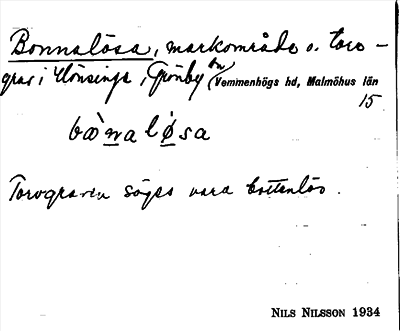 Bonnalösa, markområde o. torv-
grav i Hönsinge, Grönby sn
(Vemmenhögs hd, Malmöhus län
15.
bæ̀naløsa
Torvgraven säges vara bottenlös.
NILS NILSSON 1934